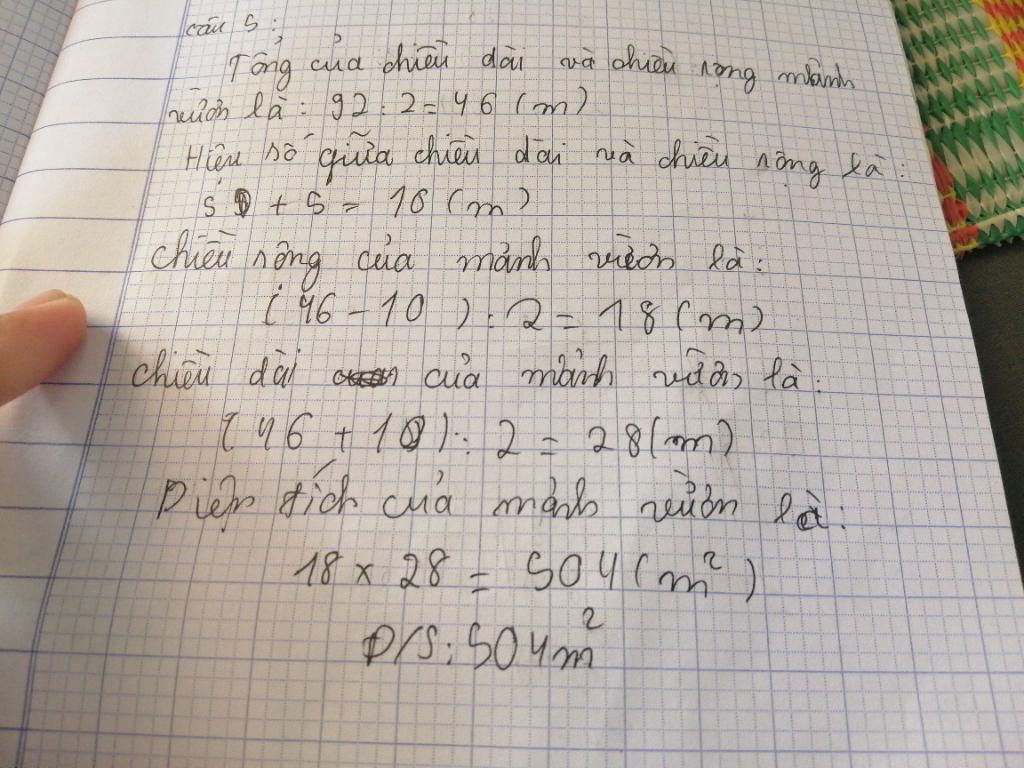 câu 5:
Tổng của chiều dài và chiều rộng mảnh
vườn là: 92 : 2 = 46 (m)
Hiệu số giữa chiều dài và chiều rộng là:
5 + 5 = 10 (m)
Chiều rộng của mảnh vườn là:
(46 - 10) : 2 = 18 (m)
Chiều dài của mảnh vườn là:
(46 + 10) : 2 = 28 (m)
Diện tích của mảnh vườn là:
18 x 28 = 504 (m²)
Đ/S: 504m²